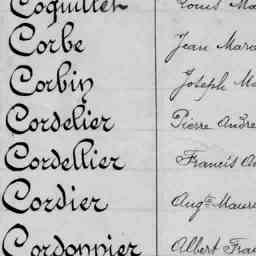 Coquillet Louis
Corbe Jean
Corbin Joseph
Cordelier Pierre André
Cordellier Francis
Cordier Augte
Cordonnier Albert